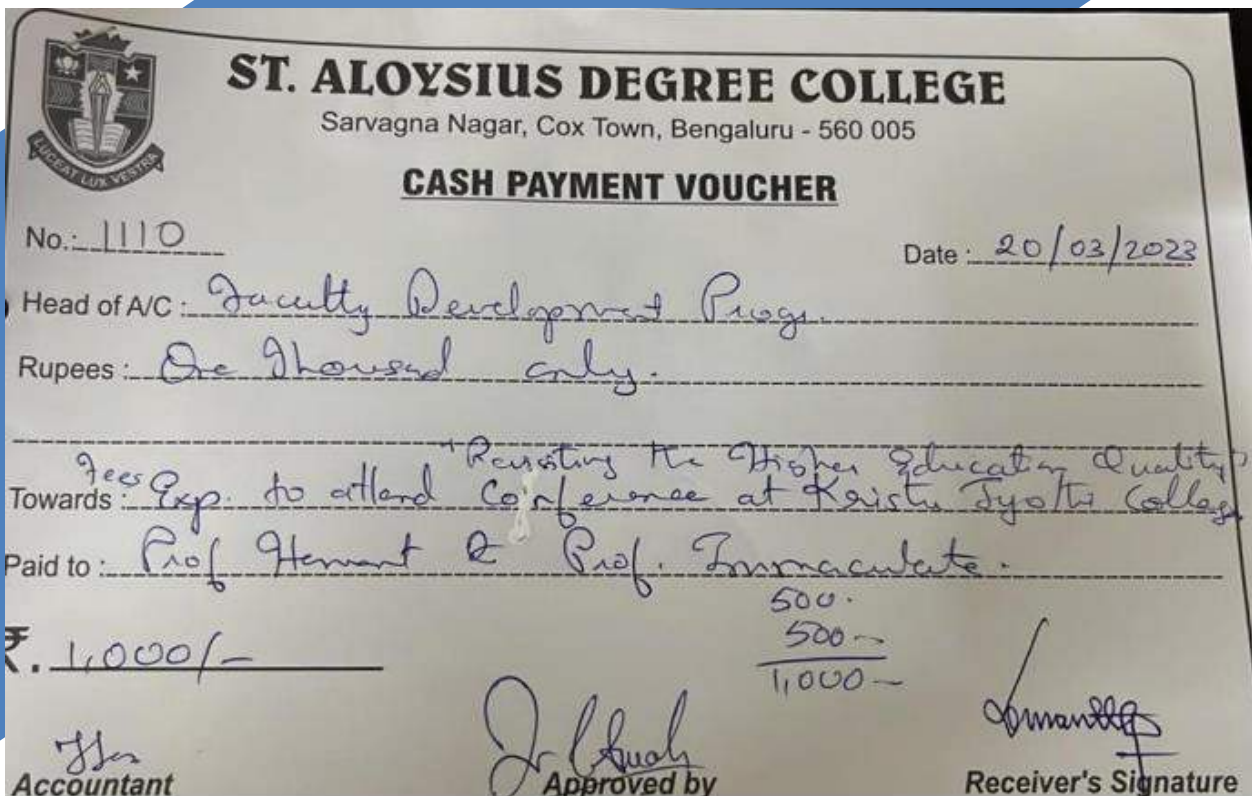 ST. ALOYSIUS DEGREE COLLEGE
Sarvagna Nagar, Cox Town, Bengaluru - 560 005
LUCEAT LUX VESTRA
CASH PAYMENT VOUCHER
No.: 1110
Date : 20/03/2023
Head of A/C : Faculty Development Progr.
Rupees : One Thousand only.
"Revisiting the Higher Education Quality"
Towards : Fees Exp. to attend Conference at Kristu Jyothi College
Paid to : Prof Hemant & Prof. Immaculate.
500.
500-
₹. 1,000/-
1,000-
Accountant
Approved by
Receiver's Signature